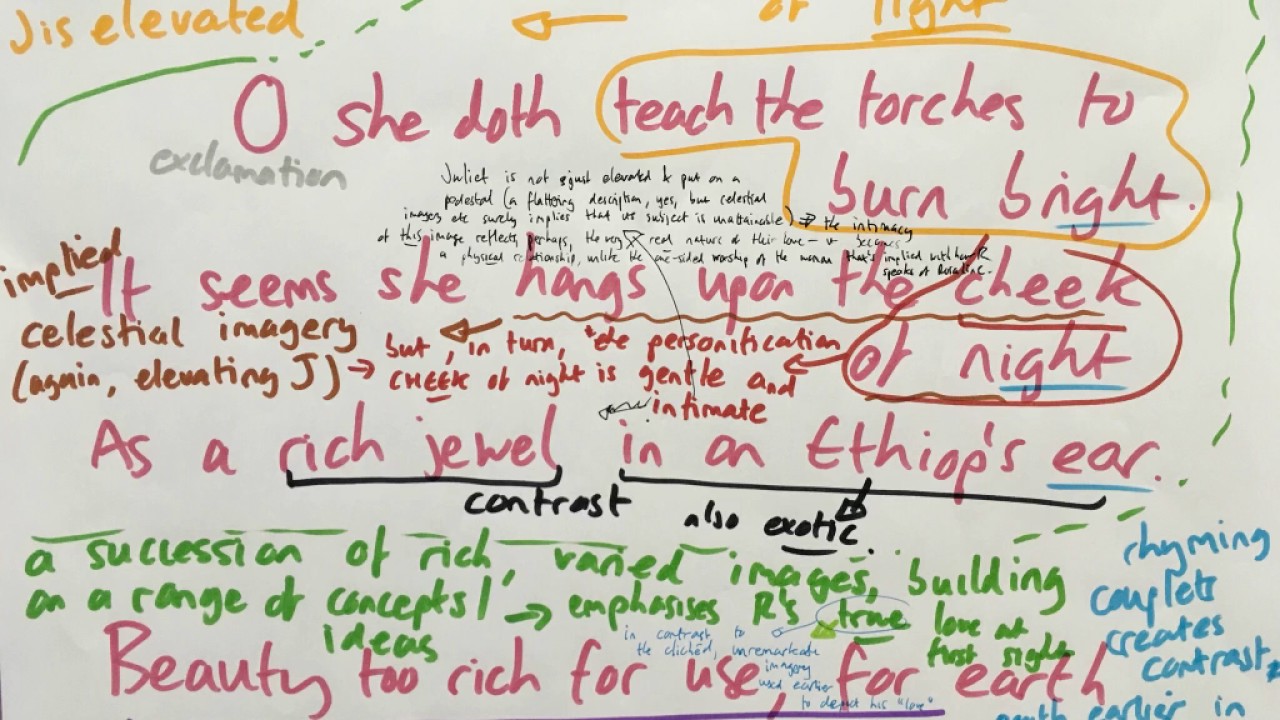 J is elevated
of light
O she doth teach the torches to
exclamation
burn bright.
Juliet is not just elevated & put on a
pedestal (a flattering description, yes, but celestial
imagery etc surely implies that its subject is unattainable) → the intimacy
of this image reflects, perhaps, the very real nature of their love - it becomes
a physical relationship, unlike the one-sided worship of the woman that's implied with how R
speaks of Rosaline.
implied
It seems she hangs upon the cheek
celestial imagery
(again, elevating J) →
but, in turn, the personification
CHEEK of night is gentle and
intimate
of night
As a rich jewel in an Ethiop's ear.
contrast
also exotic.
a succession of rich, varied images, building
on a range of concepts/
ideas
→ emphasises R's true love at
first sight
in contrast to
the clichéd, unremarkable
imagery
used earlier
to depict his "love"
rhyming
couplets
creates
contrast
earlier in
Beauty too rich for use, for earth